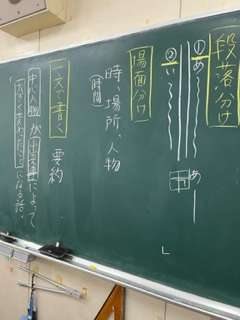 段落分け
①あ
②い
あ
場面分け
時、場所、人物
(時間)
一文で書く 要約
中心人物が出来事によって
になる話。